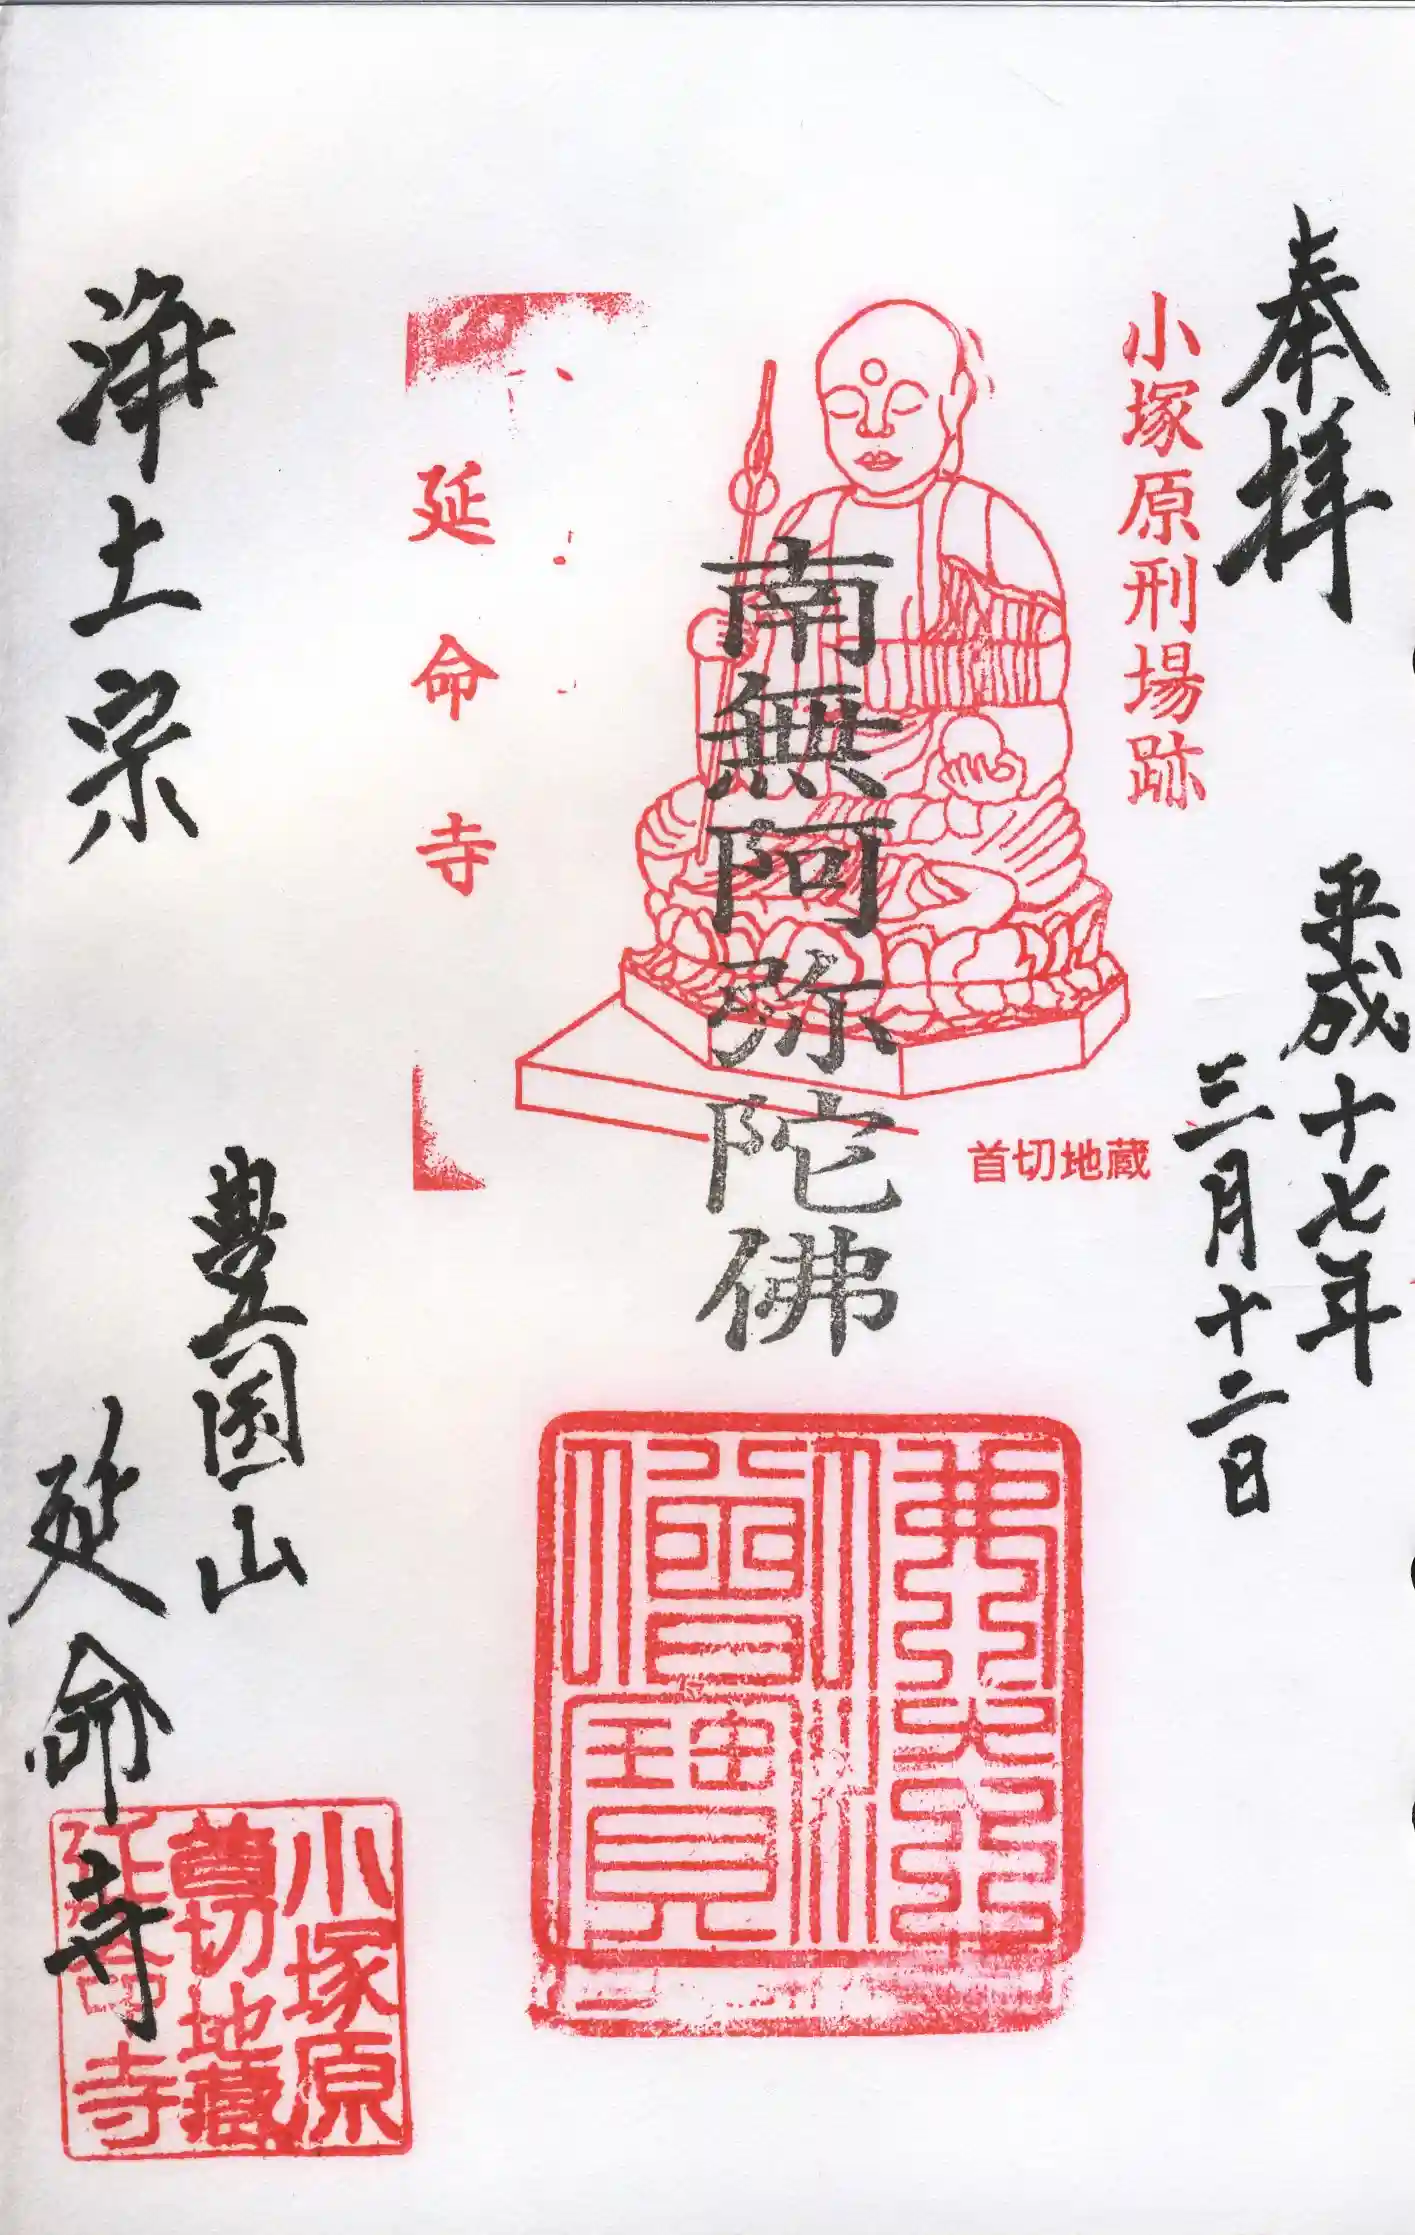 奉拝
平成十七年
三月十二日
小塚原刑場跡
首切地蔵
南無阿弥陀佛
佛法僧寶
延命寺
浄土宗
豊国山
延命寺
小塚原
首切地蔵
延命寺